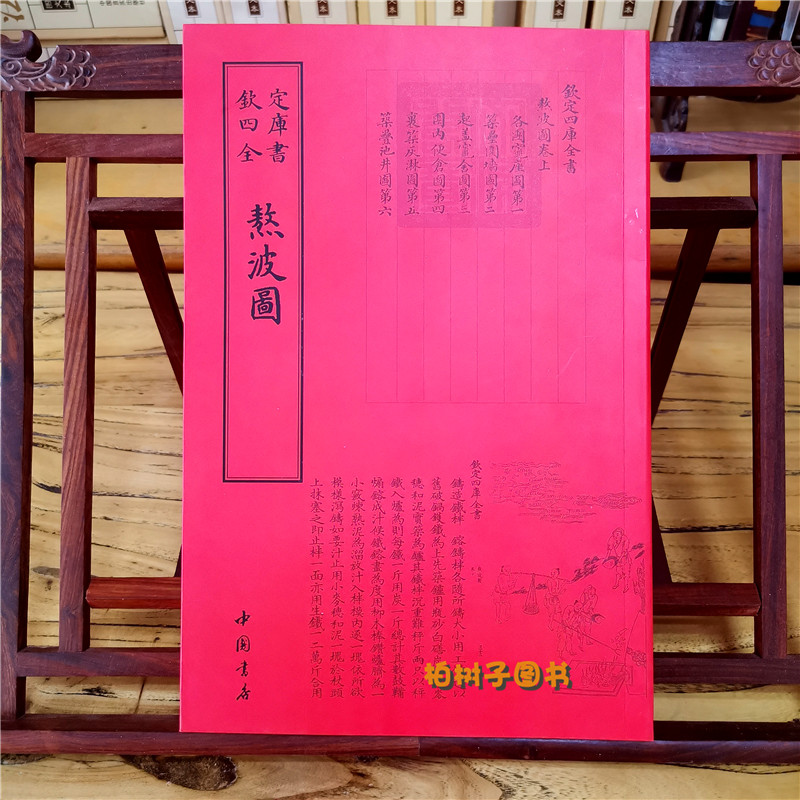 欽定四庫全書
熬波圖
中國書店
欽定四庫全書
熬波圖卷上
各團竃座圖第一
築壘圍墻圖第二
起蓋竃舍圖第三
團内便倉圖第四
裏築灰淋圖第五
築疊池井圖第六
欽定四庫全書
鑄造鐵柈 鎔鑄柈各隨所鑄大小用工
舊破鍋鑊鐵為上先築鑪用瓶砂白磰
穗和泥實築為鑪其鐵柈沉重難秤斤兩
鐵入爐為則每鐵一斤用炭一斤總計其數鼓鞴
煽鎔成汁候鐵鎔盡為度用柳木棒鑽鑪臍為一
小竅煉熟泥為溜放汁入柈模内逐一塊依所欲
模樣瀉鑄如要汁止用小麥穗和泥一塊於杖頭
上抹塞之即止柈一面亦用生鐵一二萬斤合用
柏树子图书